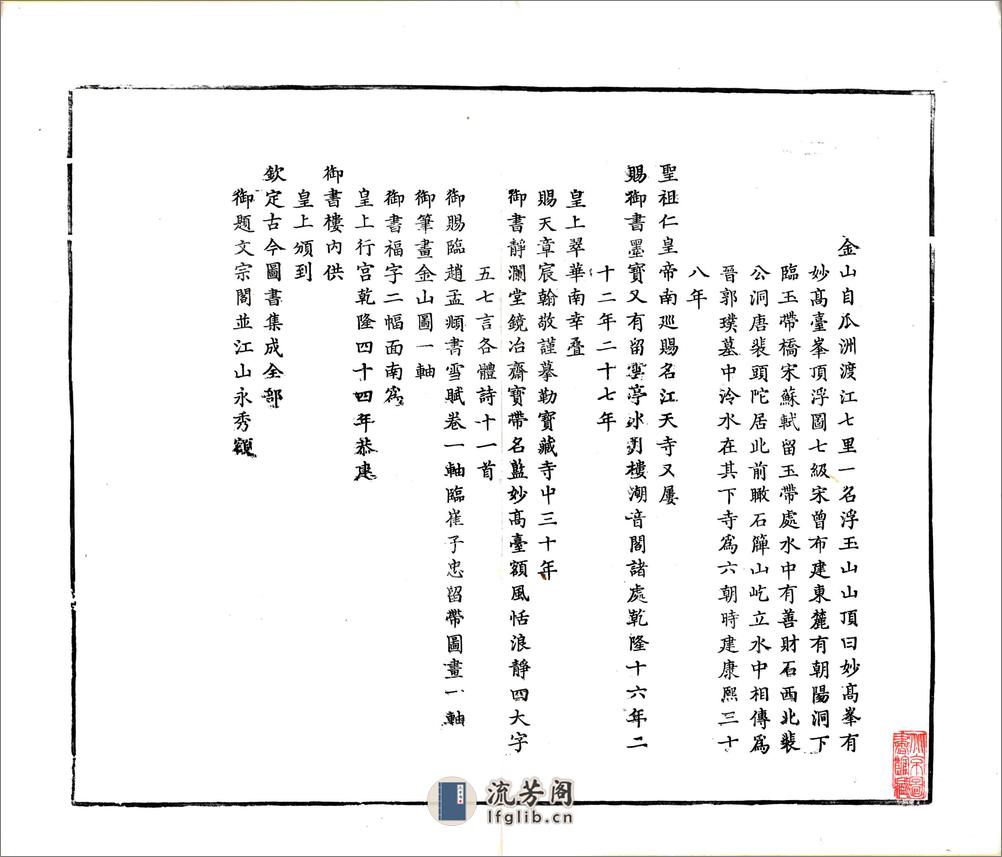 金山自瓜洲渡江七里一名浮玉山山頂曰妙高峯有
妙高臺峯頂浮圖七級宋曾布建東麓有朝陽洞下
臨玉帶橋宋蘇軾留玉帶處水中有善財石西北裴
公洞唐裴頭陀居此前瞰石簰山屹立水中相傳為
晉郭璞墓中泠水在其下寺為六朝時建康熙三十
八年
聖祖仁皇帝南巡賜名江天寺又屢
賜御書墨寶又有留雲亭水月樓潮音閣諸處乾隆十六年二
十二年二十七年
皇上翠華南幸疊
賜天章宸翰敬謹摹勒寶藏寺中三十年
御書靜瀾堂鏡冶齋寶帶名藍妙高臺額風恬浪靜四大字
五七言各體詩十一首
御賜臨趙孟頫書雪賦卷一軸臨崔子忠留帶圖畫一軸
御筆畫金山圖一軸
御書福字二幅面南為
皇上行宮乾隆四十四年恭建
御書樓內供
皇上頒到
欽定古今圖書集成全部
御題文宗閣並江山永秀額
流芳阁
lfglib.cn